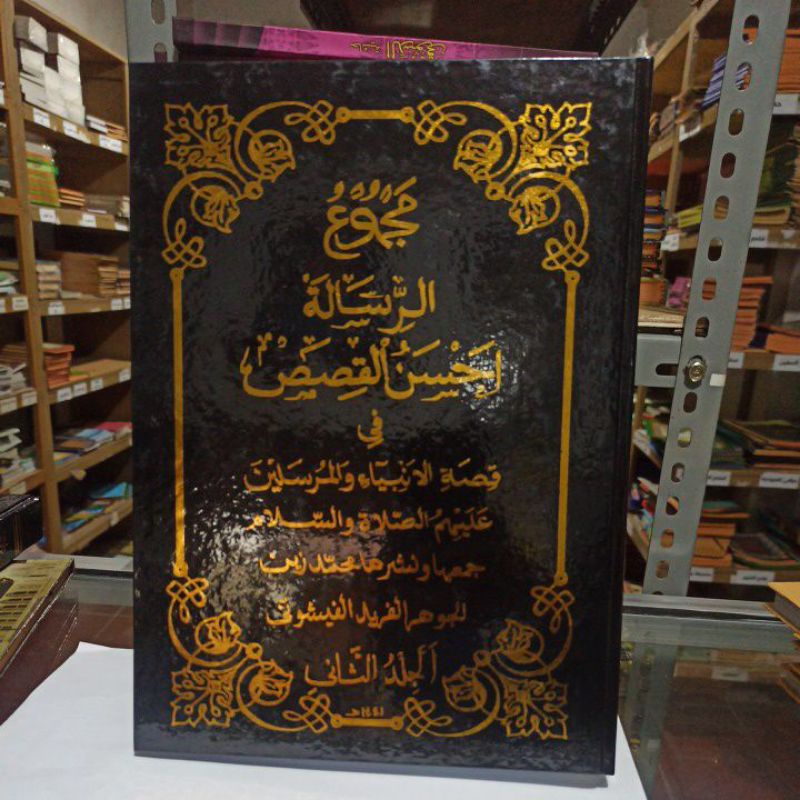 مَجْمُوْعُ
الرِّسَالَةَ
اَحْسَنُ الْقِصَصْ
فِي
قصة الانبياء والمرسلين
عليهم الصلاة والسلام
جمعها ونشرها محمد زين
للجوهر الفريد الفيشوني
اَلْجِلْدُ الثَّانِي
١٤٤١هـ